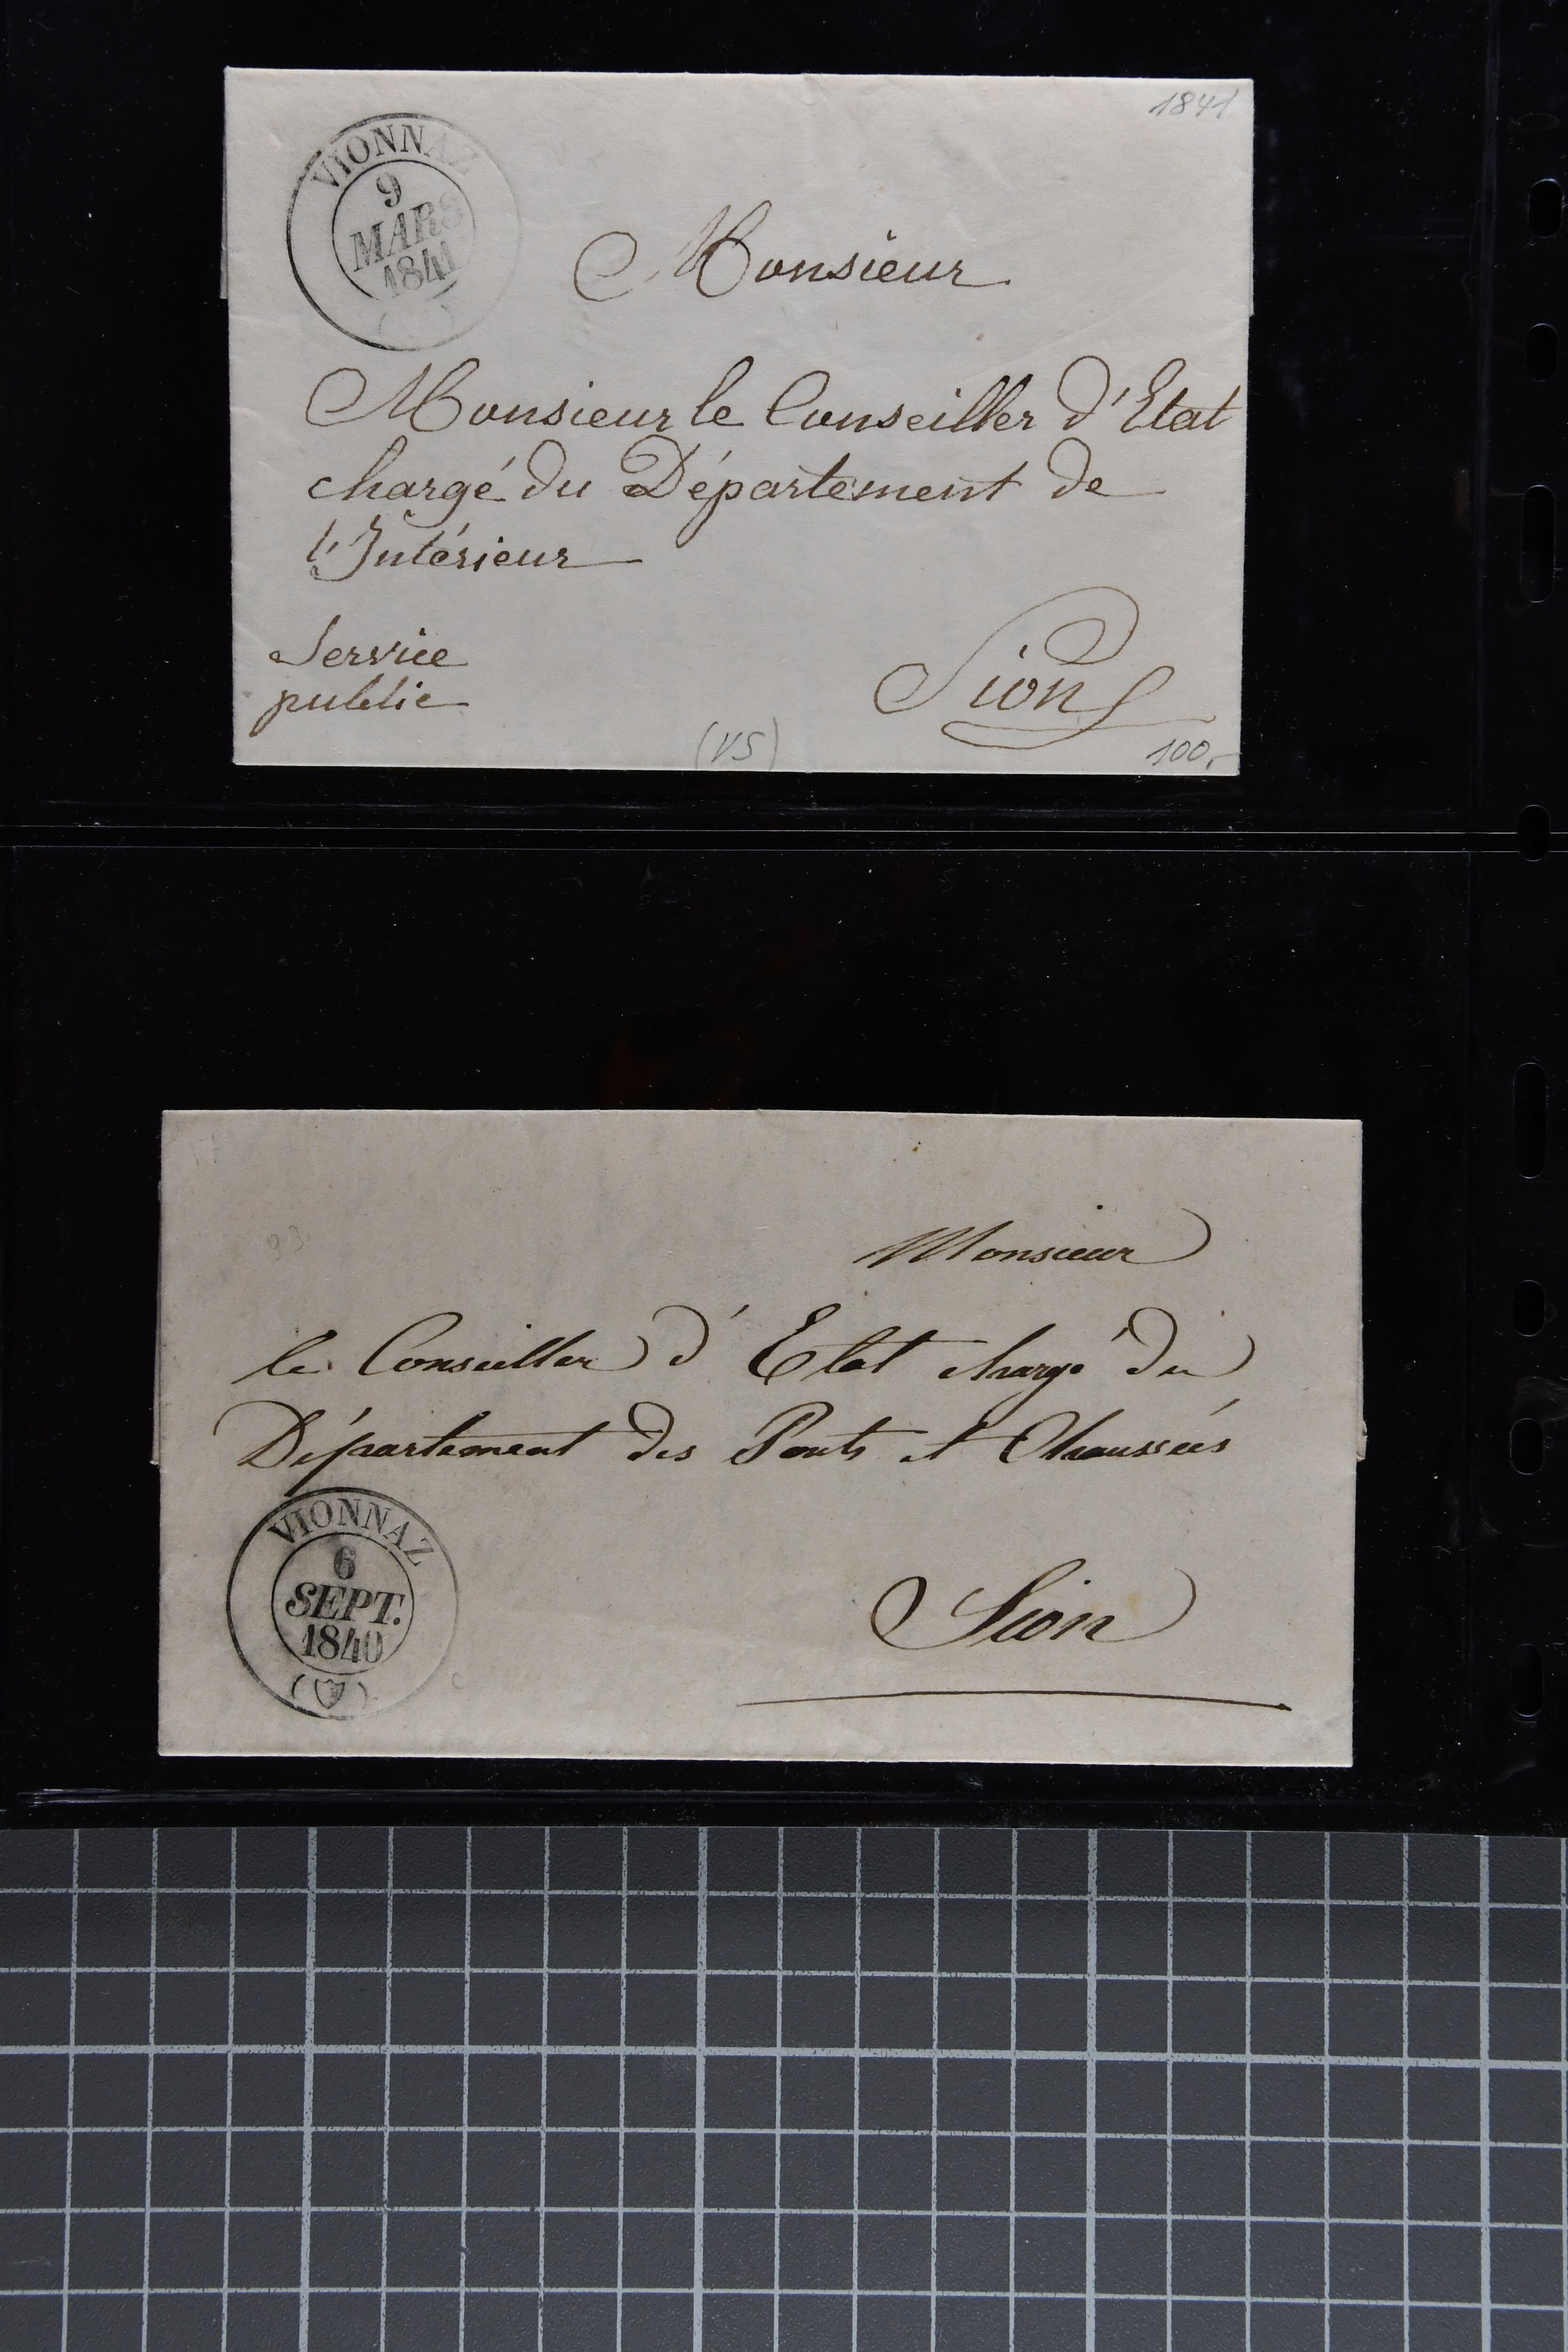 1841
VIONNAZ
9
MARS
1841
Monsieur
Monsieur le Conseiller d'Etat
chargé du Département de
l'Intérieur
Service
public
Sion
(VS)
100,-
93
Monsieur
le Conseiller d'Etat chargé du
Département des Ponts et Chaussées
VIONNAZ
6
SEPT.
1840
Sion